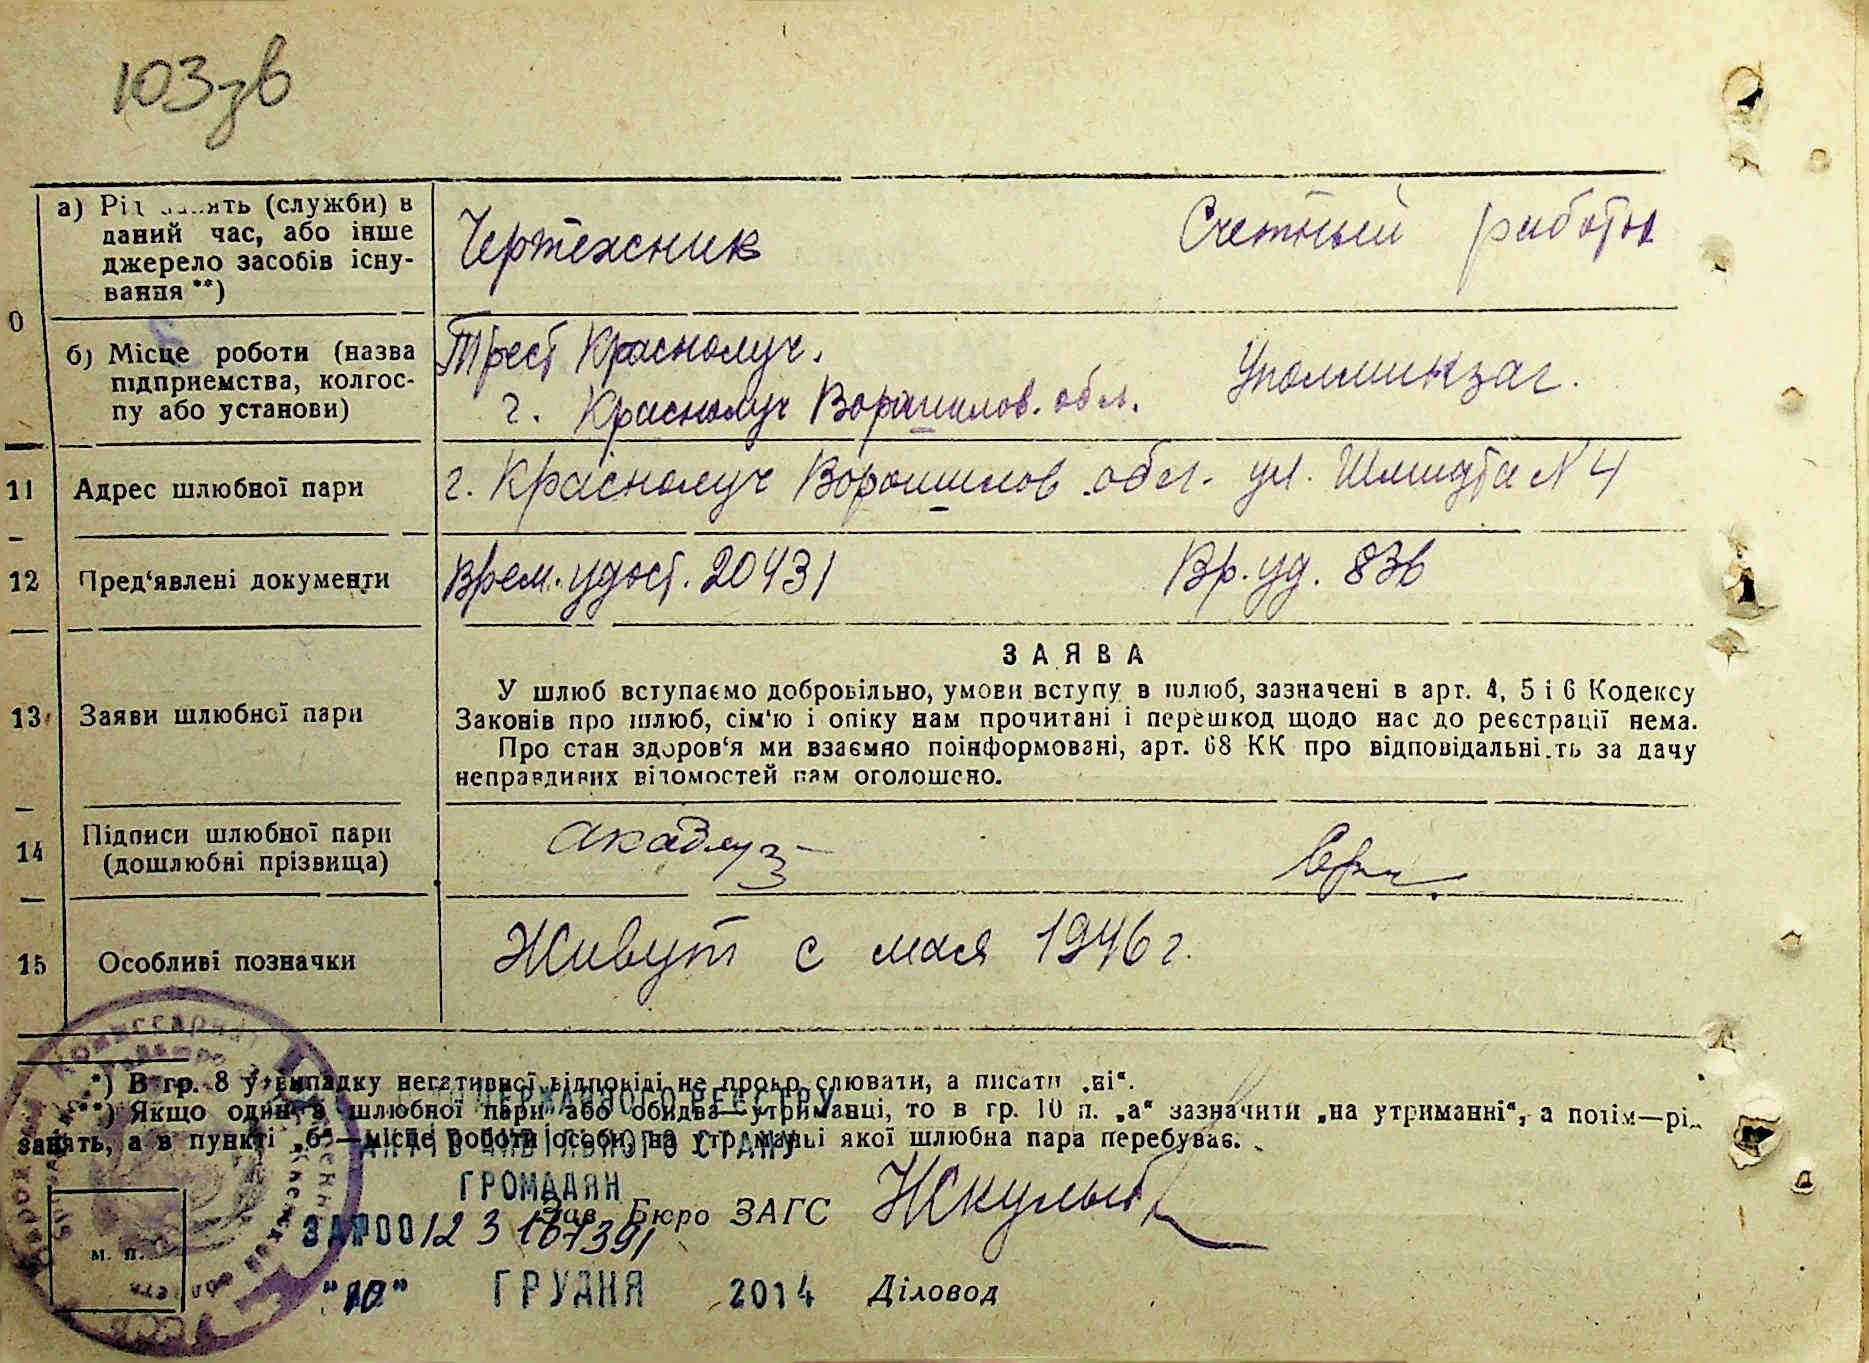 103зв
а) Рід занять (служби) в
даний час, або інше
джерело засобів існу-
вання **)
Чертежник
Счетный работн
0
б) Місце роботи (назва
підприемства, колгос-
пу або установи)
Трест Краснолуч.
г. Краснолуч Ворошилов. обл.
Уполминзаг.
11 Адрес шлюбної пари
г. Краснолуч Ворошилов. обл. ул. Шмидта N 4
12 Пред‘явлені документи
Врем. удост. 20431
Вр. уд. 836
ЗАЯВА
13 Заяви шлюбної пари
У шлюб вступаємо добровільно, умови вступу в шлюб, зазначені в арт. 4, 5 і 6 Кодексу
Законів про шлюб, сім‘ю і опіку нам прочитані і перешкод щодо нас до реєстрації нема.
Про стан здоров‘я ми взаємно поінформовані, арт. 68 КК про відповідальність за дачу
неправдивих відомостей нам оголошено.
14 Підписи шлюбної пари
(дошлюбні прізвища)
15 Особливі позначки
Живут с мая 1946 г.
*) В гр. 8 у випадку негативної відповіді не прокреслювати, а писати „ні“.
**) Якщо один з шлюбної пари або обидва—утриманці, то в гр. 10 п. „а“ зазначити „на утриманні“, а потім—рід
занять, а в пункті „б“—місце роботи особи, на утриманні якої шлюбна пара перебуває.
ДЕРЖАВНОГО РЕЄСТРУ
АКТІВ ЦИВІЛЬНОГО СТАНУ
ГРОМАДЯН
Зав. Бюро ЗАГС
"10" ГРУДНЯ 2014
Діловод
м. п.